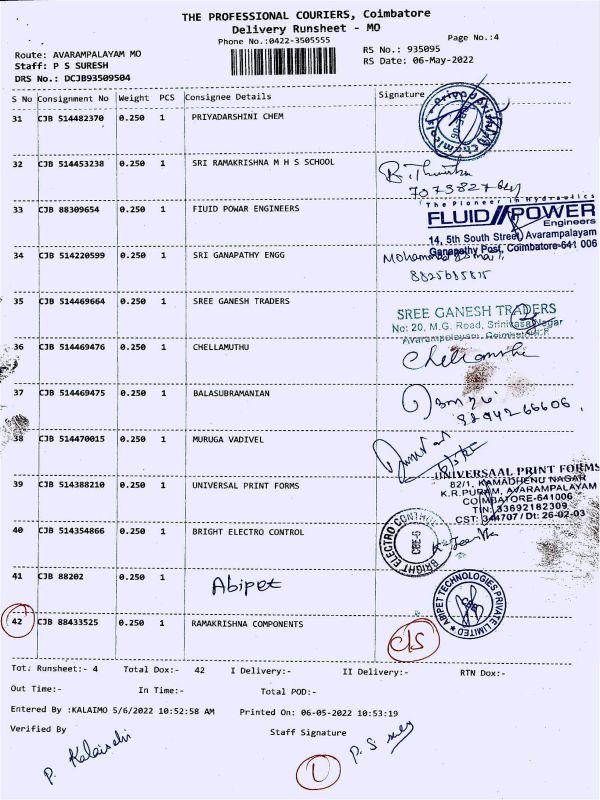 THE PROFESSIONAL COURIERS, Coimbatore
Delivery Runsheet - MO
Phone No.:0422-3505555
Page No.:4
Route: AVARAMPALAYAM MO
RS No.: 935095
Staff: P S SURESH
RS Date: 06-May-2022
DRS No.: DCJB93509504
S No Consignment No Weight PCS Consignee Details Signature
31 CJB 514482370 0.250 1 PRIYADARSHINI CHEM
32 CJB 514453238 0.250 1 SRI RAMAKRISHNA M H S SCHOOL
33 CJB 88309654 0.250 1 FIUID POWAR ENGINEERS
The Pioneer in Hydraulics
FLUID POWER
Engineers
14, 5th South Street, Avarampalayam
Ganapathy Post, Coimbatore-641 006
34 CJB 514220599 0.250 1 SRI GANAPATHY ENGG
35 CJB 514469664 0.250 1 SREE GANESH TRADERS
SREE GANESH TRADERS
No: 20, M.G. Road, Srinivasa Nagar
36 CJB 514469476 0.250 1 CHELLAMUTHU
37 CJB 514469475 0.250 1 BALASUBRAMANIAN
38 CJB 514470015 0.250 1 MURUGA VADIVEL
39 CJB 514388210 0.250 1 UNIVERSAL PRINT FORMS
UNIVERSAAL PRINT FORMS
82/1, KAMADHENU NAGAR
K.R.PURAM, AVARAMPALAYAM
COIMBATORE-641006
TIN: 33692182309
CST: 344707 / Dt: 26-02-03
40 CJB 514354866 0.250 1 BRIGHT ELECTRO CONTROL
BRIGHT ELECTRO CONTROL
CBE-6
41 CJB 88202 0.250 1 Abipet
ABIPET TECHNOLOGIES PRIVATE LIMITED
42 CJB 88433525 0.250 1 RAMAKRISHNA COMPONENTS
C/S
Tot. Runsheet:- 4 Total Dox:- 42 I Delivery:- II Delivery:- RTN Dox:-
Out Time:- In Time:- Total POD:-
Entered By :KALAIMO 5/6/2022 10:52:58 AM Printed On: 06-05-2022 10:53:19
Verified By Staff Signature